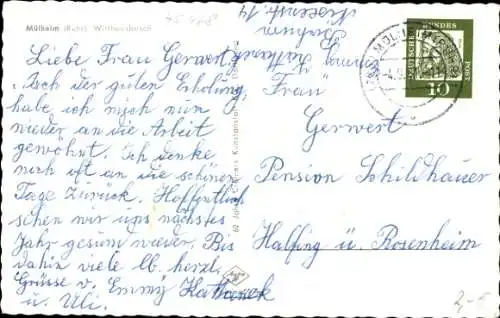 Mülheim (Ruhr) Wirtshausborsch
45 478
Liebe Frau Gerwert,
Nach der guten Erholung
habe ich mich nun
wieder an die Arbeit
gewöhnt. Ich denke
noch oft an die schönen
Tage zurück. Hoffentlich
sehen wir uns nächstes
Jahr gesund wieder. Bis
dahin viele lb. herzl.
Grüsse v. Emmy
u. Uli.
60 Jahre Cramers Kunstanstalt
Bochum
14
DEUTSCHE BUNDESPOST
10
Frau
Gerwert
Pension Schildhauer
Halfing ü. Rosenheim
2,-